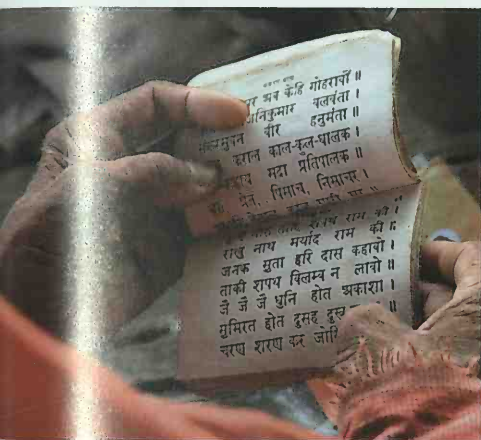 अब केहि गोहरावौं ॥
बलवंता ।
वीर हनुमंता ॥
कराल काल-कुल-घालक ।
सदा प्रतिपालक ॥
प्रेत, पिसाच, निसाचर ।
शपथ राम की ।
राखु नाथ मर्याद राम की ॥
जनक सुता हरि दास कहावो ।
ताकी शपथ विलम्ब न लावो ॥
जै जै जै धुनि होत अकाशा ।
सुमिरत होत दुसह दुख ॥
चरण शरण कर जोरि